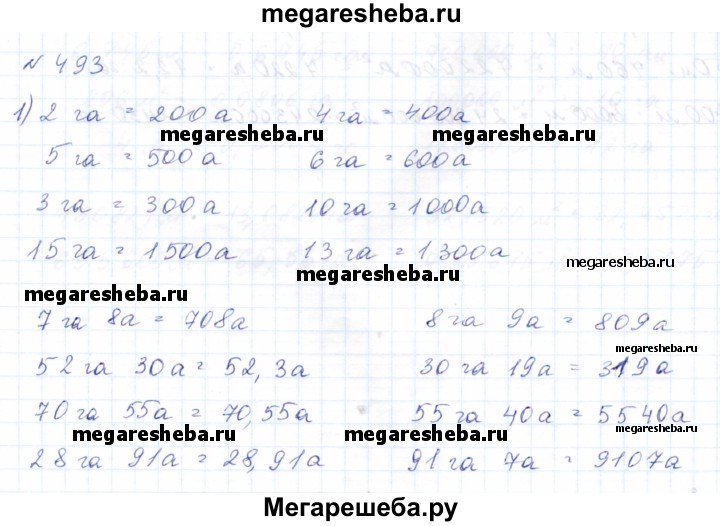 megaresheba.ru
№ 493
1) 2 га = 200а 4 га = 400а
megaresheba.ru megaresheba.ru
5 га = 500 а 6 га = 600а
3 га = 300 а 10 га = 1000а
15 га = 1500а 13 га = 1300а
megaresheba.ru megaresheba.ru
megaresheba.ru
7 га 8а = 708а 8 га 9а = 809а
megaresheba.ru
52 га 30а = 52,3а 30 га 19а = 319а
70 га 55а = 70,55а 55 га 40а = 5540а
megaresheba.ru megaresheba.ru megaresheba.ru
28 га 91а = 28,91а 91 га 7а = 9107а
Мегарешеба.ру